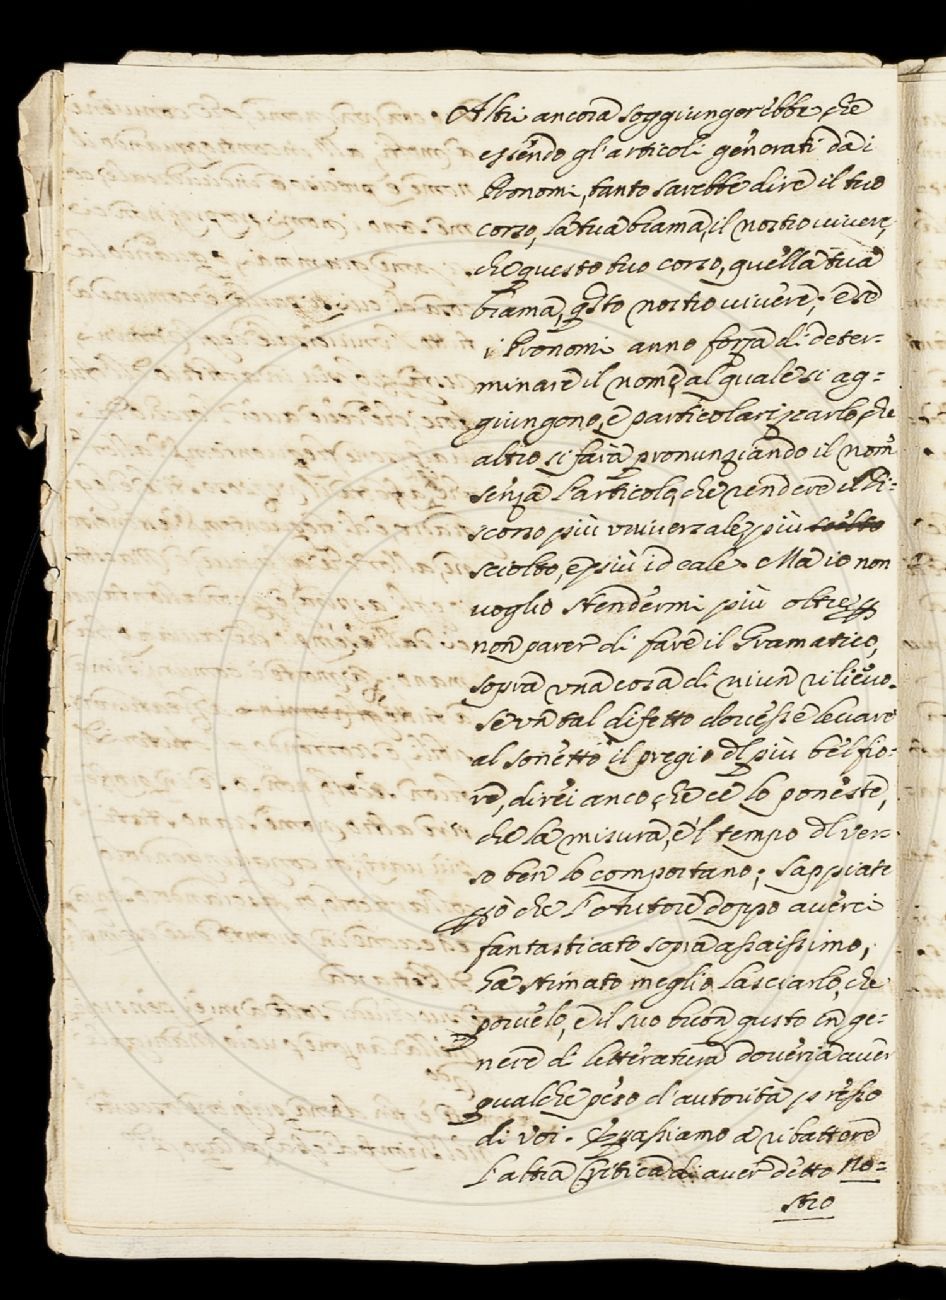 Altri ancora soggiungerebbe che
essendo gl'articoli generati da i
Pronomi, tanto sarebbe dire il tuo
corso, la tua brama, il nostro vivere,
che questo tuo corso, quella tua
brama, qsto nostro vivere; e se
i Pronomi anno forza di deter-
minare il nome, al quale si ag=
giungono, e particolarizzarlo, che
altro si farà pronunziando il nome
senza l'articolo, che rendere il di-
scorso più vniversale, più sciolto
sciolto, e più ideale. Ma io non
voglio stendermi più oltre p
non parer di fare il Gramatico,
sopra vna cosa di niun rilievo.
Se vn tal difetto dovesse levare
al sonetto il pregio dl più bel fio-
re, direi anco che ce lo poneste,
che la misura, e'l tempo dl ver-
so ben lo comportano; sappiate
pò che l'Autore doppo averci
fantasticato sopra assaissimo,
ha stimato meglio lasciarlo, che
porvelo, e il suo buon gusto in ge-
nere di letteratura doveria aver
qualche peso d'autorità presso
di voi. E passiamo a ribattere
l'altra Critica di aver detto no=
stro